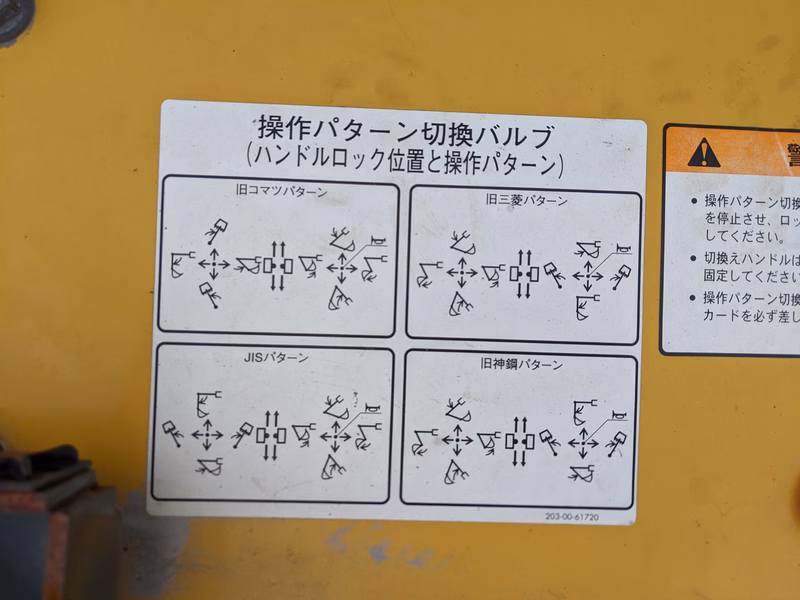 操作パターン切換バルブ
(ハンドルロック位置と操作パターン)
旧コマツパターン
旧三菱パターン
JISパターン
旧神鋼パターン
203-00-61720
警
● 操作パターン切換
を停止させ、ロッ
してください。
● 切換えハンドルは
固定してください
● 操作パターン切換
カードを必ず差し